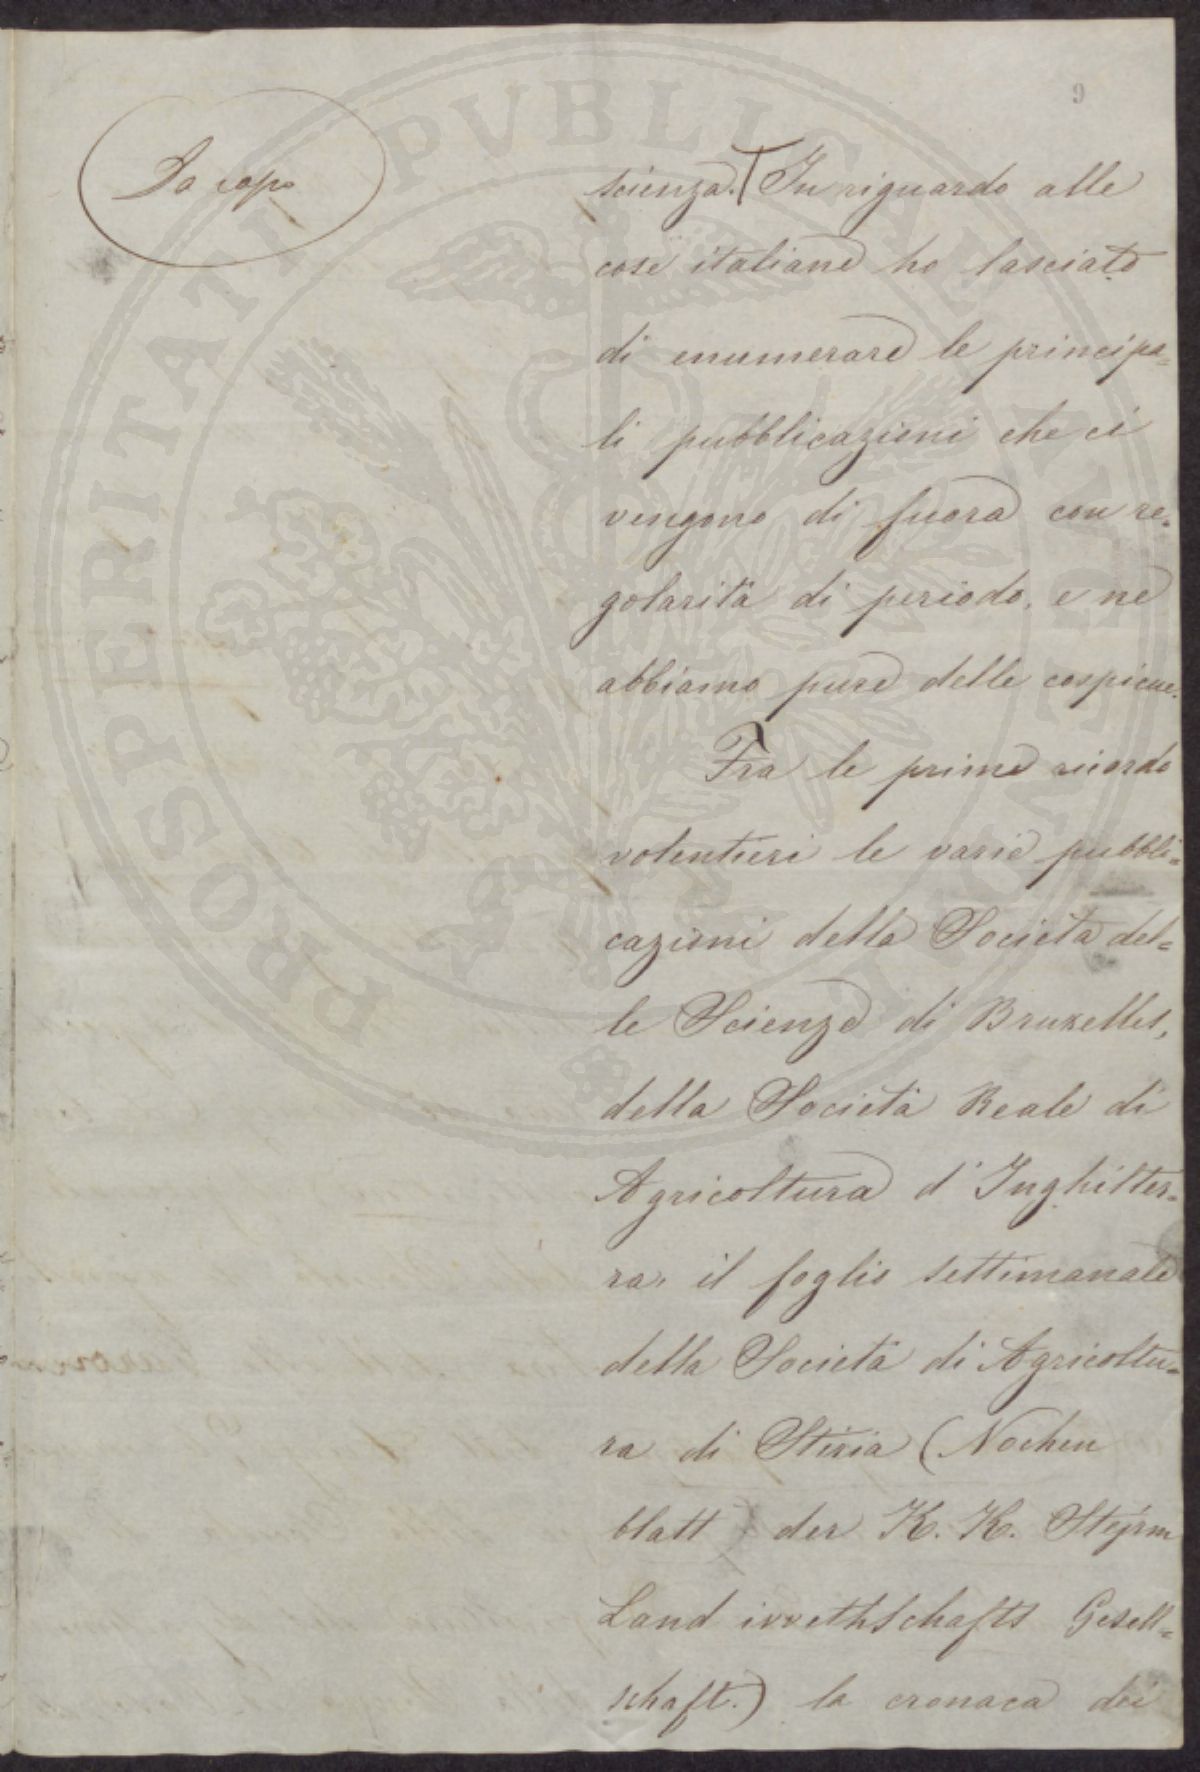 9
Da capo
scienza. In riguardo alle
cose italiane ho lasciato
di enumerare le principa=
li pubblicazioni che ci
vengono di fuora con re=
golarità di periodo, e ne
abbiamo pure delle cospicue.
Fra le prime ricordo
volentieri le varie pubbli=
cazioni della Società del=
le Scienze di Bruxelles,
della Società Reale di
Agricoltura d'Inghilter=
ra, il foglio settimanale
della Società di Agricoltu=
ra di Stiria (Nochen
blatt der K. K. Stejrm
Land ivvethschafts Gesell=
schaft.) la cronaca dei
PUBLICAE
PROSPERITATI